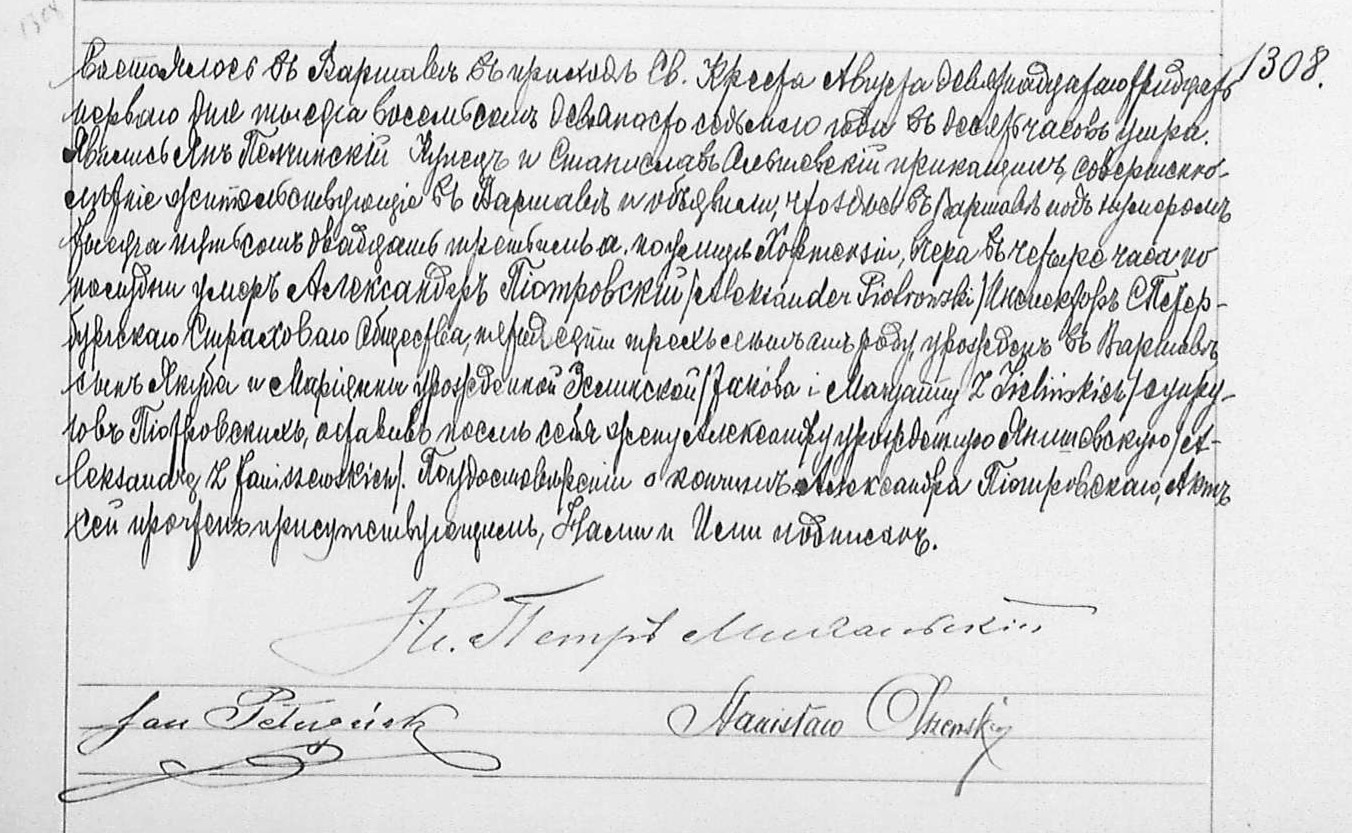 1308
1308.
Состоялось въ Варшавѣ въ приходѣ Св. Креста Августа девятнадцатаго /тридцать
перваго/ дня тысяча восемьсотъ девяносто седьмого года въ десять часовъ утра.
Явились Янъ купецъ и Станиславъ прикащикъ, совершенно-
лѣтніе жительствующіе въ Варшавѣ и объявили, что здѣсь въ Варшавѣ подъ нумеромъ
тысяча пятьсотъ двадцать третьимъ а. по улицѣ Хортензіи, вчера въ четыре часа по
полудни умеръ Александеръ Піотровскій /Aleksander Piotrowski/ Инспекторъ С Петер-
бургскаго Страховаго Общества, тридцати трехъ лѣтъ отъ роду, урожденъ въ Варшавѣ,
сынъ Якуба и Маріянны урожденной Зелинской /Jakóba i Maryanny z Zielińskich/ супру-
говъ Піотровскихъ, оставивъ послѣ себя жену Александру урожденную Янишевскую /A-
leksandrę z Janiszewskich/. По удостовѣреніи о кончинѣ Александра Піотровскаго, Актъ
сей прочтенъ присутствующимъ, Нами и Ими подписанъ.
Кс. Петръ
Jan
Stanisław Olszewski